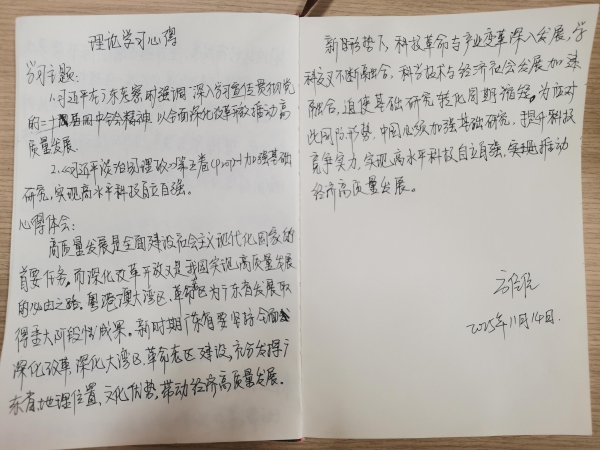 理论学习心得
学习主题:
1.习近平在广东考察时强调 深入学习宣传贯彻党
的二十届四中全会精神 以全面深化改革推动高
质量发展.
2.《习近平谈治国理政》第五卷 加强基础
研究,实现高水平科技自立自强。
心得体会:
高质量发展是全面建设社会主义现代化国家的
首要任务,而深化改革开放又是我国实现高质量发展
的必由之路。粤港澳大湾区、革命老区为广东省发展取
得重大阶段性成果。新时期广东省要坚持全面
深化改革,深化大湾区、革命老区建设,充分发挥广
东省地理位置、文化优势,带动经济高质量发展.
新形势下,科技革命与产业变革深入发展,学
科交叉不断融合,科学技术与经济社会发展加速
融合,迫使基础研究转化周期缩短,为应对
此国际形势,中国必须加强基础研究,提升科技
竞争实力,实现高水平科技自立自强,实现推动
经济高质量发展。
2025年11月14日.